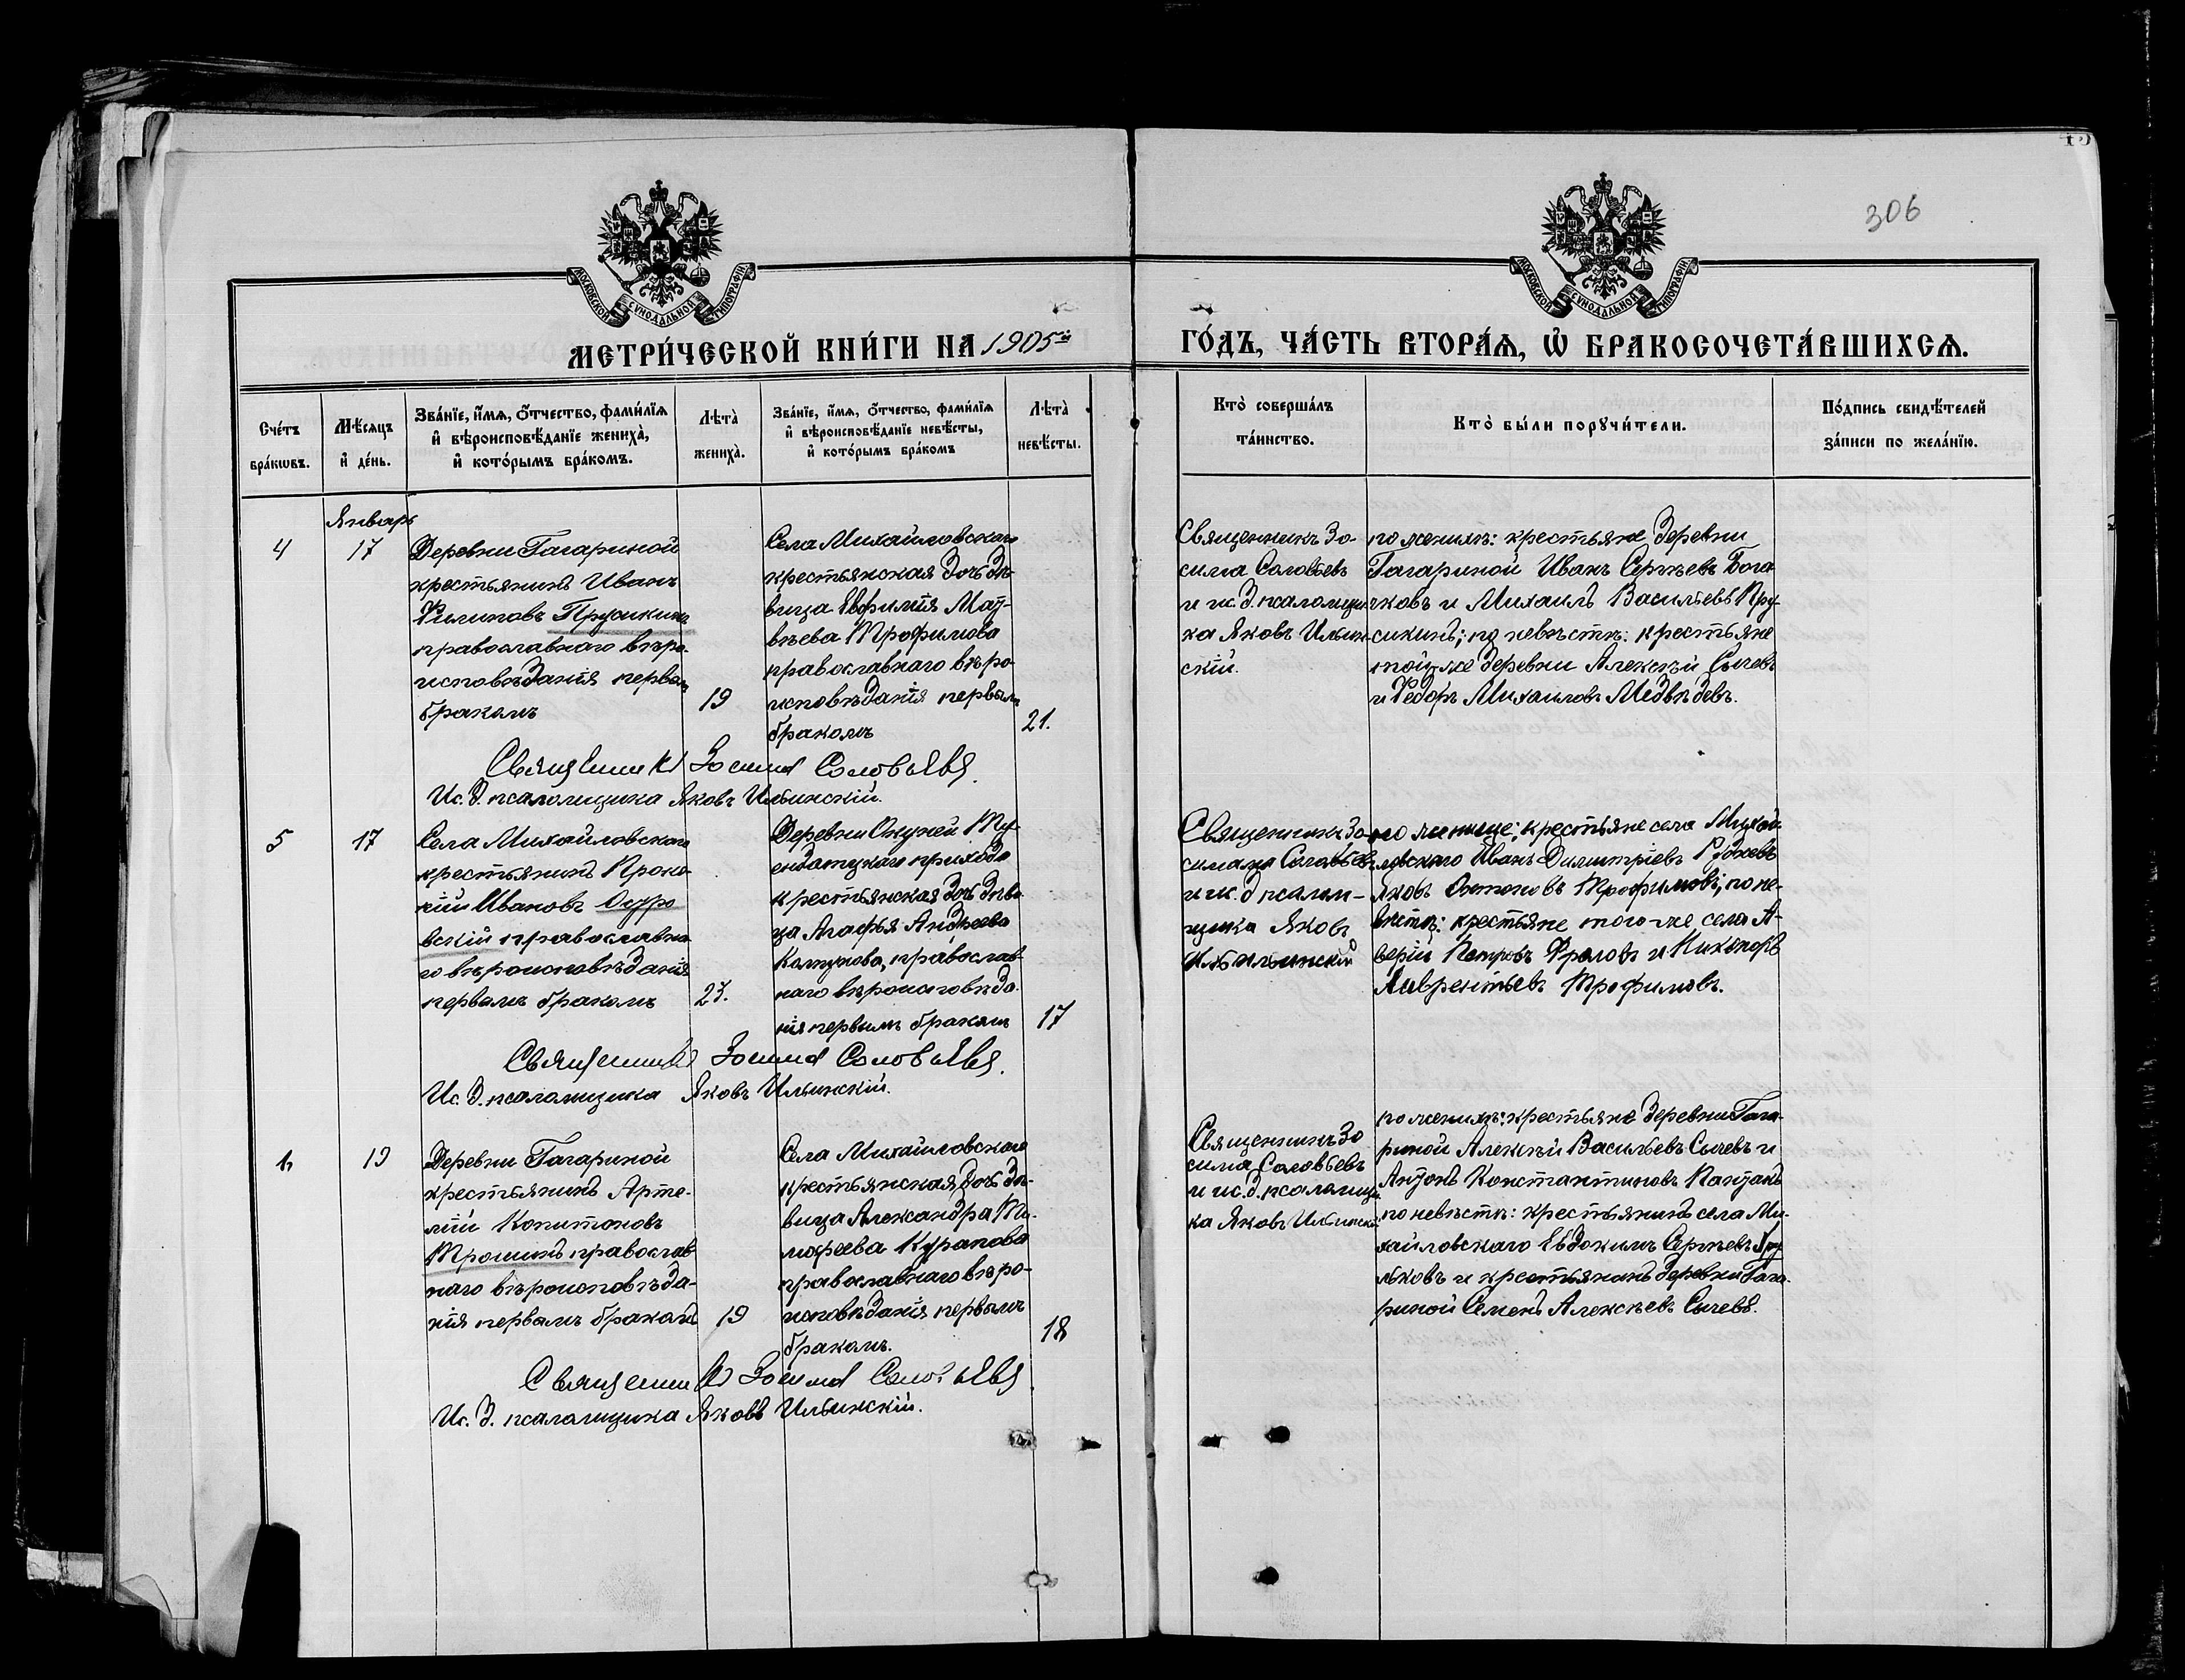 306
МОСКОВСКОЙ СУНОДАЛЬНОЙ ТИПОГРАФІИ
МОСКОВСКОЙ СУНОДАЛЬНОЙ ТИПОГРАФІИ
МЕТРИ́ЧЕСКОЙ КНИ́ГИ НА 1905й ГО́ДЪ, ЧА́СТЬ ВТОРА́Я, Ѡ БРАКОСОЧЕТА́ВШИХСЯ.
Сче́тъ
бра́кѡвъ.
Мѣ́сяцъ
и де́нь.
Зва́нїе, и́мя, о́тчество, фами́лїя
и вѣроисповѣ́данїе жениха̀,
и кото́рымъ бра́комъ.
Лѣта̀
жениха̀.
Зва́нїе, и́мя, о́тчество, фами́лїя
и вѣроисповѣ́данїе невѣ́сты,
и кото́рымъ бра́комъ
Лѣта̀
невѣ́сты.
Кто̀ соверша́лъ
та́инство.
Кто̀ бы́ли порꙋчи́тели.
По́дпись свидѣ́телей
за́писи по жела́нїю.
Январь
4
17
Деревни Гагариной
крестьянинъ Иванъ
Филиповъ Прусикинъ
православнаго вѣро-
исповѣданія первы
бракомъ
19
Села Михайловскаго
крестьянская дочь дѣ-
вица Евфимія Мат-
вѣева Трофимова
православнаго вѣро-
исповѣданія первым
бракомъ
21.
Священникъ Зо-
сима Соловьевъ
и ис. д. псаломщи-
ка Яковъ Ильин-
скій.
по женихѣ: крестьяне деревни
Гагариной Иванъ Сергѣевъ Бога-
чковъ и Михаилъ Васильевъ Пру-
сикинъ; по невѣстѣ: крестьяне
той-же деревни Алексѣй Сычевъ
и Ѳедоръ Михаиловъ Медвѣдевъ.
Священникъ Зосима Соловьевъ
Ис. д. псаломщика Яковъ Ильинскій.
5
17
Села Михайловскаго
крестьянинъ Проко-
пій Ивановъ
православна
го вѣроисповѣданія
первымъ бракомъ
23.
Деревни Окуней
прихода
крестьянская дочь дѣви
ца Агафья Андреева
православ-
наго вѣроисповѣда-
нія первымъ бракомъ
17
Священникъ Зо-
сима Соловьевъ
и ис. д псалом-
щика Яковъ
Ильинскій
по женихѣ; крестьяне села Михай-
ловскаго Иванъ Димитріевъ
Яковъ Трофимовъ; по не-
вѣстѣ: крестьяне того-же села А-
верій Петровъ Фроловъ и Никаноръ
Лаврентьевъ Трофимовъ.
Священникъ Зосима Соловьевъ
Ис. д. псаломщика Яковъ Ильинскій.
6
19
Деревни Гагариной
крестьянинъ Арте-
мій Капитоновъ
Трошинъ православ-
наго вѣроисповѣда-
нія первымъ бракомъ
19
Села Михайловскаго
крестьянская дочь дѣ-
вица Александра Ти-
мофеева Курапова
православнаго вѣро-
исповѣданія первымъ
бракомъ.
18
Священникъ Зо
сима Соловьевъ
и ис. д. псаломщи
ка Яковъ Ильинскій
по женихѣ: крестьяне деревни Гага-
риной Алексѣй Васильевъ Сычевъ и
Антонъ Константиновъ
по невѣстѣ: крестьянинъ села Ми-
хайловскаго Евдокимъ Сергѣевъ
и крестьянинъ деревни Гага-
риной Семенъ Алексѣевъ Сычевъ.
Священникъ Зосима Соловьевъ
Ис. д. псаломщика Яковъ Ильинскій.